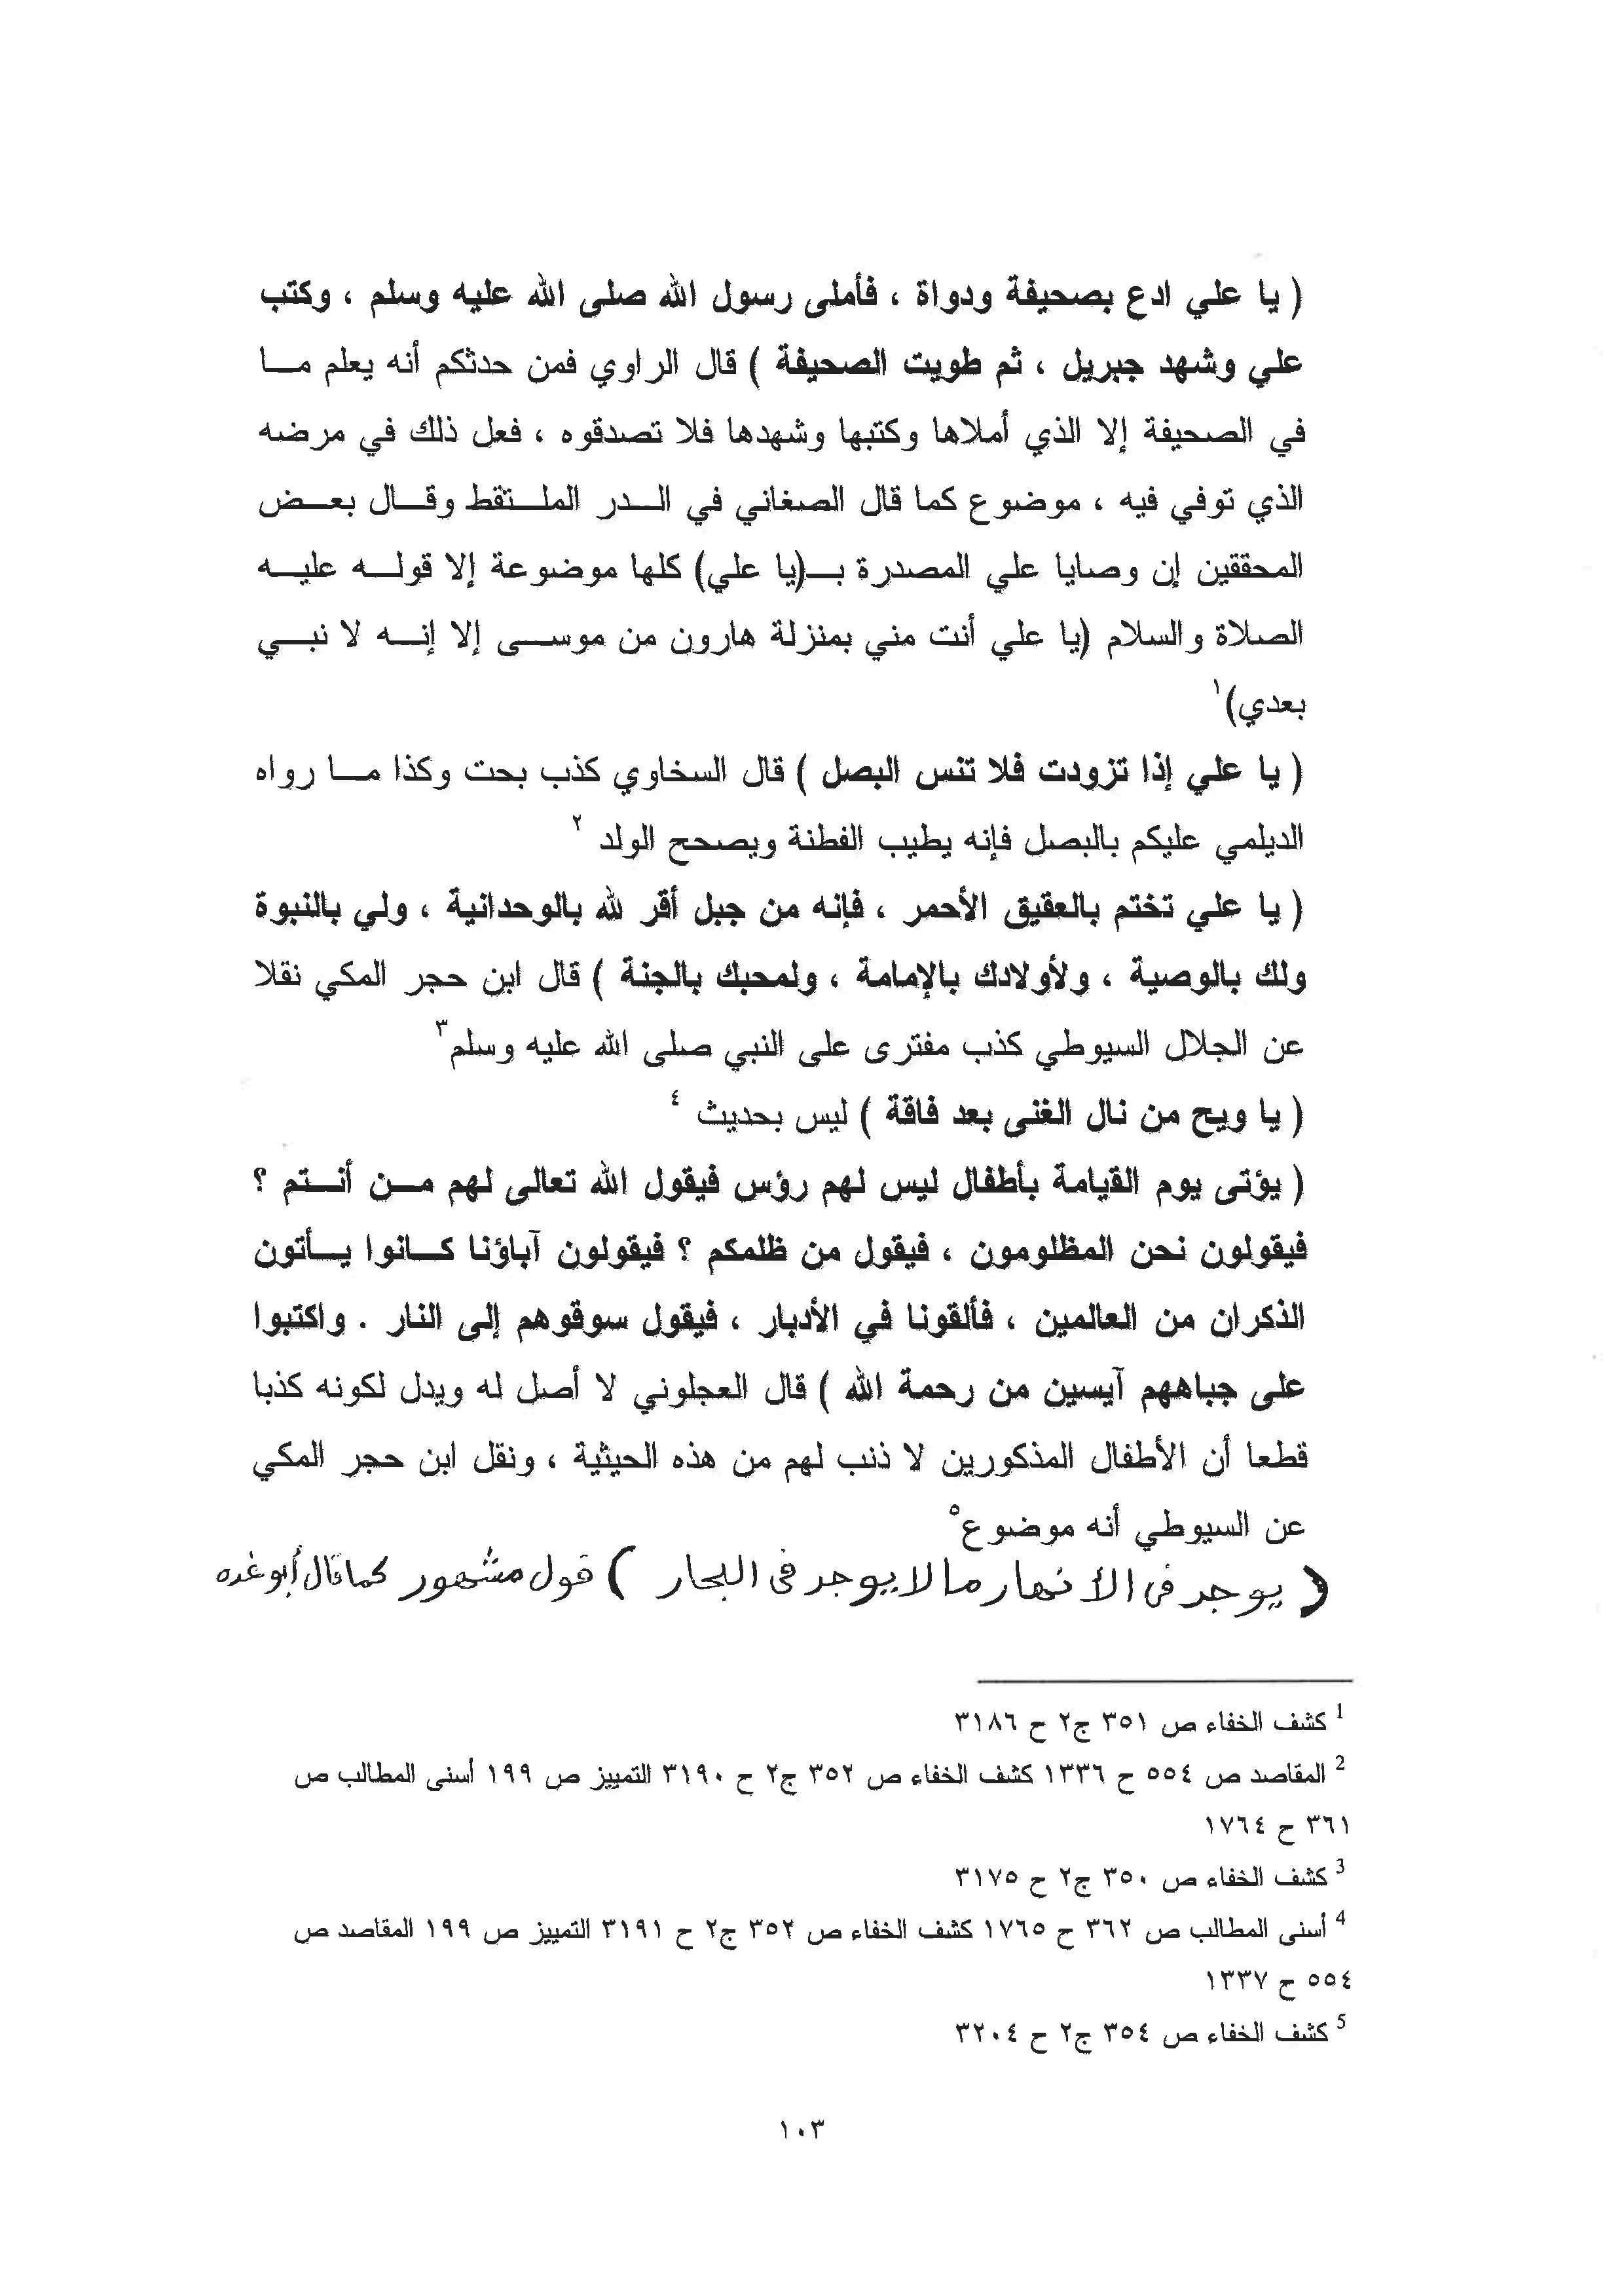 ( يا علي ادع بصحيفة ودواة ، فأملى رسول الله صلى الله عليه وسلم ، وكتب
علي وشهد جبريل ، ثم طويت الصحيفة ) قال الراوي فمن حدثكم أنه يعلم ما
في الصحيفة إلا الذي أملاها وكتبها وشهدها فلا تصدقوه ، فعل ذلك في مرضه
الذي توفي فيه ، موضوع كما قال الصغاني في الدر الملتقط وقال بعض
المحققين إن وصايا علي المصدرة بـ(يا علي) كلها موضوعة إلا قوله عليه
الصلاة والسلام (يا علي أنت مني بمنزلة هارون من موسى إلا إنه لا نبي
بعدي)١
( يا علي إذا تزودت فلا تنس البصل ) قال السخاوي كذب بحت وكذا ما رواه
الديلمي عليكم بالبصل فإنه يطيب الفطنة ويصحح الولد ٢
( يا علي تختم بالعقيق الأحمر ، فإنه من جبل أقر لله بالوحدانية ، ولي بالنبوة
ولك بالوصية ، ولأولادك بالإمامة ، ولمحبك بالجنة ) قال ابن حجر المكي نقلا
عن الجلال السيوطي كذب مفترى على النبي صلى الله عليه وسلم٣
( يا ويح من نال الغنى بعد فاقة ) ليس بحديث ٤
( يؤتى يوم القيامة بأطفال ليس لهم رؤس فيقول الله تعالى لهم من أنتم ؟
فيقولون نحن المظلومون ، فيقول من ظلمكم ؟ فيقولون آباؤنا كانوا يأتون
الذكران من العالمين ، فألقونا في الأدبار ، فيقول سوقوهم إلى النار . واكتبوا
على جباههم آيسين من رحمة الله ) قال العجلوني لا أصل له ويدل لكونه كذبا
قطعا أن الأطفال المذكورين لا ذنب لهم من هذه الحيثية ، ونقل ابن حجر المكي
عن السيوطي أنه موضوع٥
( يوجد في الأنهار ما لا يوجد في البحار ) قول مشهور كما قال أبو غده
1 كشف الخفاء ص ٣٥١ ج٢ ح ٣١٨٦
2 المقاصد ص ٥٥٤ ح ١٣٣٦ كشف الخفاء ص ٣٥٢ ج٢ ح ٣١٩٠ التمييز ص ١٩٩ أسنى المطالب ص
٣٦١ ح ١٧٦٤
3 كشف الخفاء ص ٣٥٠ ج٢ ح ٣١٧٥
4 أسنى المطالب ص ٣٦٢ ح ١٧٦٥ كشف الخفاء ص ٣٥٢ ج٢ ح ٣١٩١ التمييز ص ١٩٩ المقاصد ص
٥٥٤ ح ١٣٣٧
5 كشف الخفاء ص ٣٥٤ ج٢ ح ٣٢٠٤
١٠٣